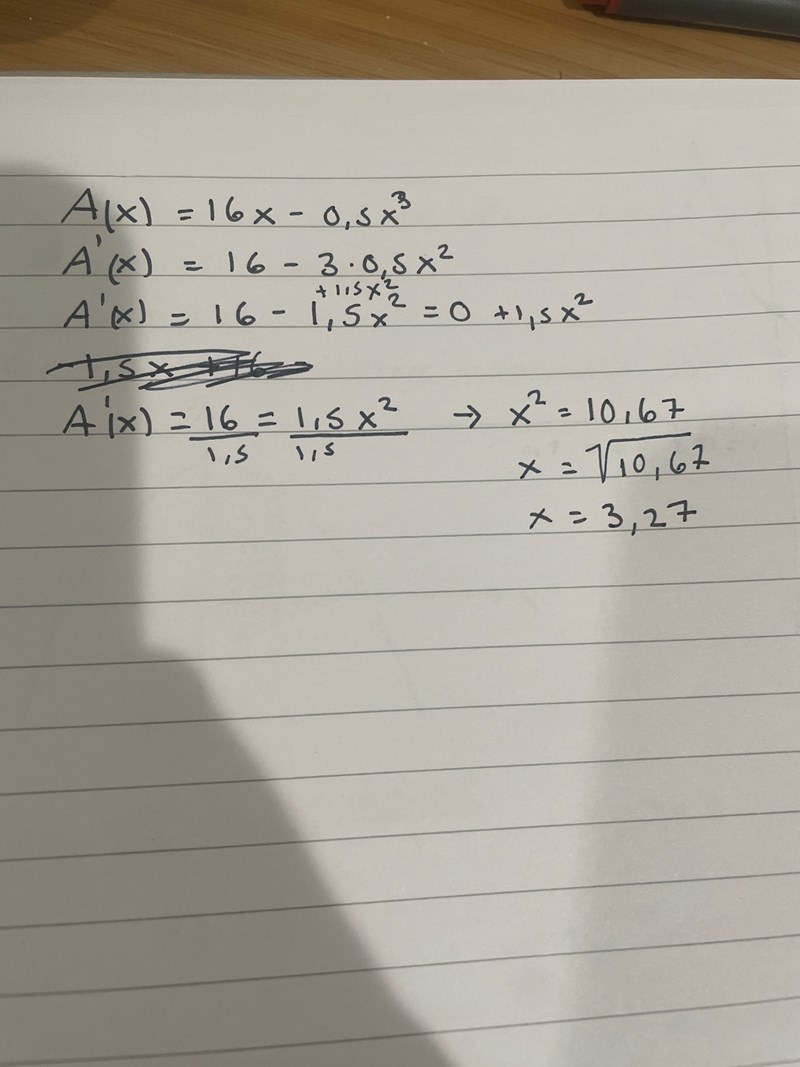 A(x) = 16x - 0,5x³
A'(x) = 16 - 3·0,5x²
+1,5x²
A'(x) = 16 - 1,5x² = 0 +1,5x²
-1,5x +16
A'(x) = 16/1,5 = 1,5x²/1,5 → x² = 10,67
x = √10,67
x = 3,27